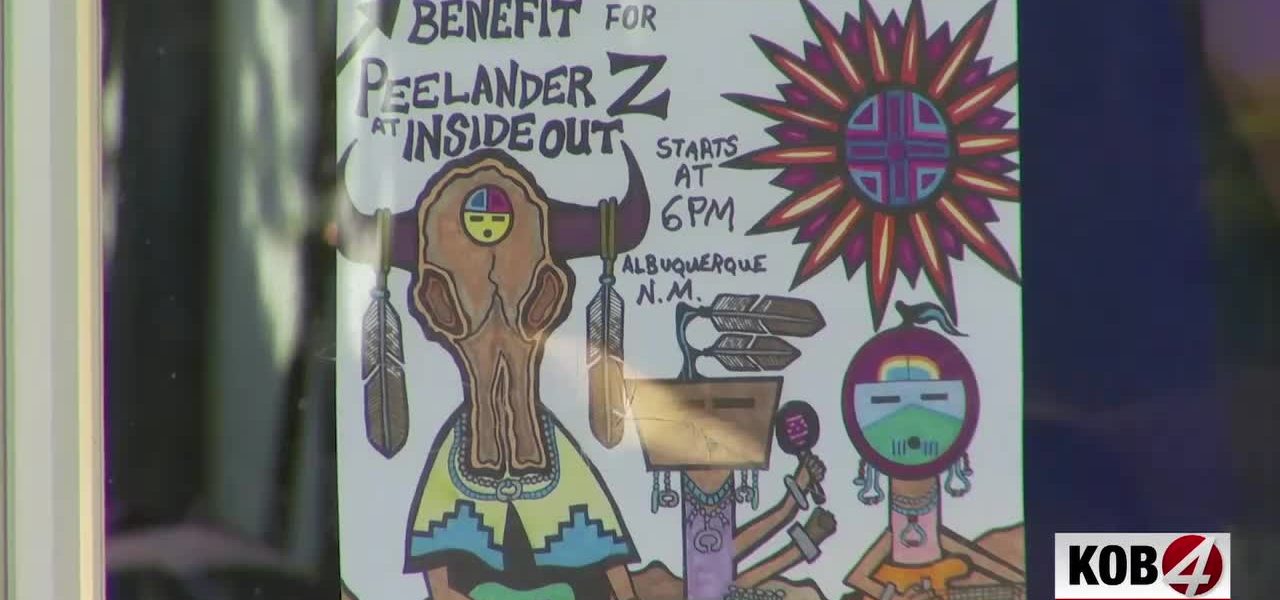 BENEFIT FOR
PEELANDER Z
AT INSIDE OUT
STARTS
AT
6PM
ALBUQUERQUE
N.M.
KOB 4